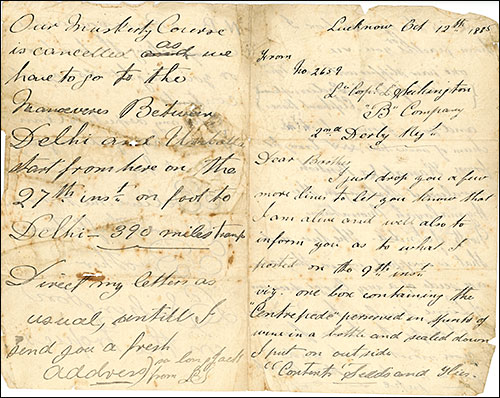 Our Musketry Course
is cancelled as we
have to go to the
Manoeveres Between
Delhi and Umballa
start from here on the
27th inst on foot to
Delhi - 390 miles tramp
Direct my letters as
usual, untill I
send you a fresh
address
so long Jack
from
Lucknow Oct 12th 1885
From
No. 2659
Ln Copl
"B" Company
2nd Derby Regt
Dear Brother
I just drop you a few
more lines to let you know that
I am alive and well also to
inform you as to what I
posted on the 9th inst
viz. one box containing the
"Centrepede" perserved in spirits of
wine in a bottle and sealed down
I put on outside
"Contents" Seeds and